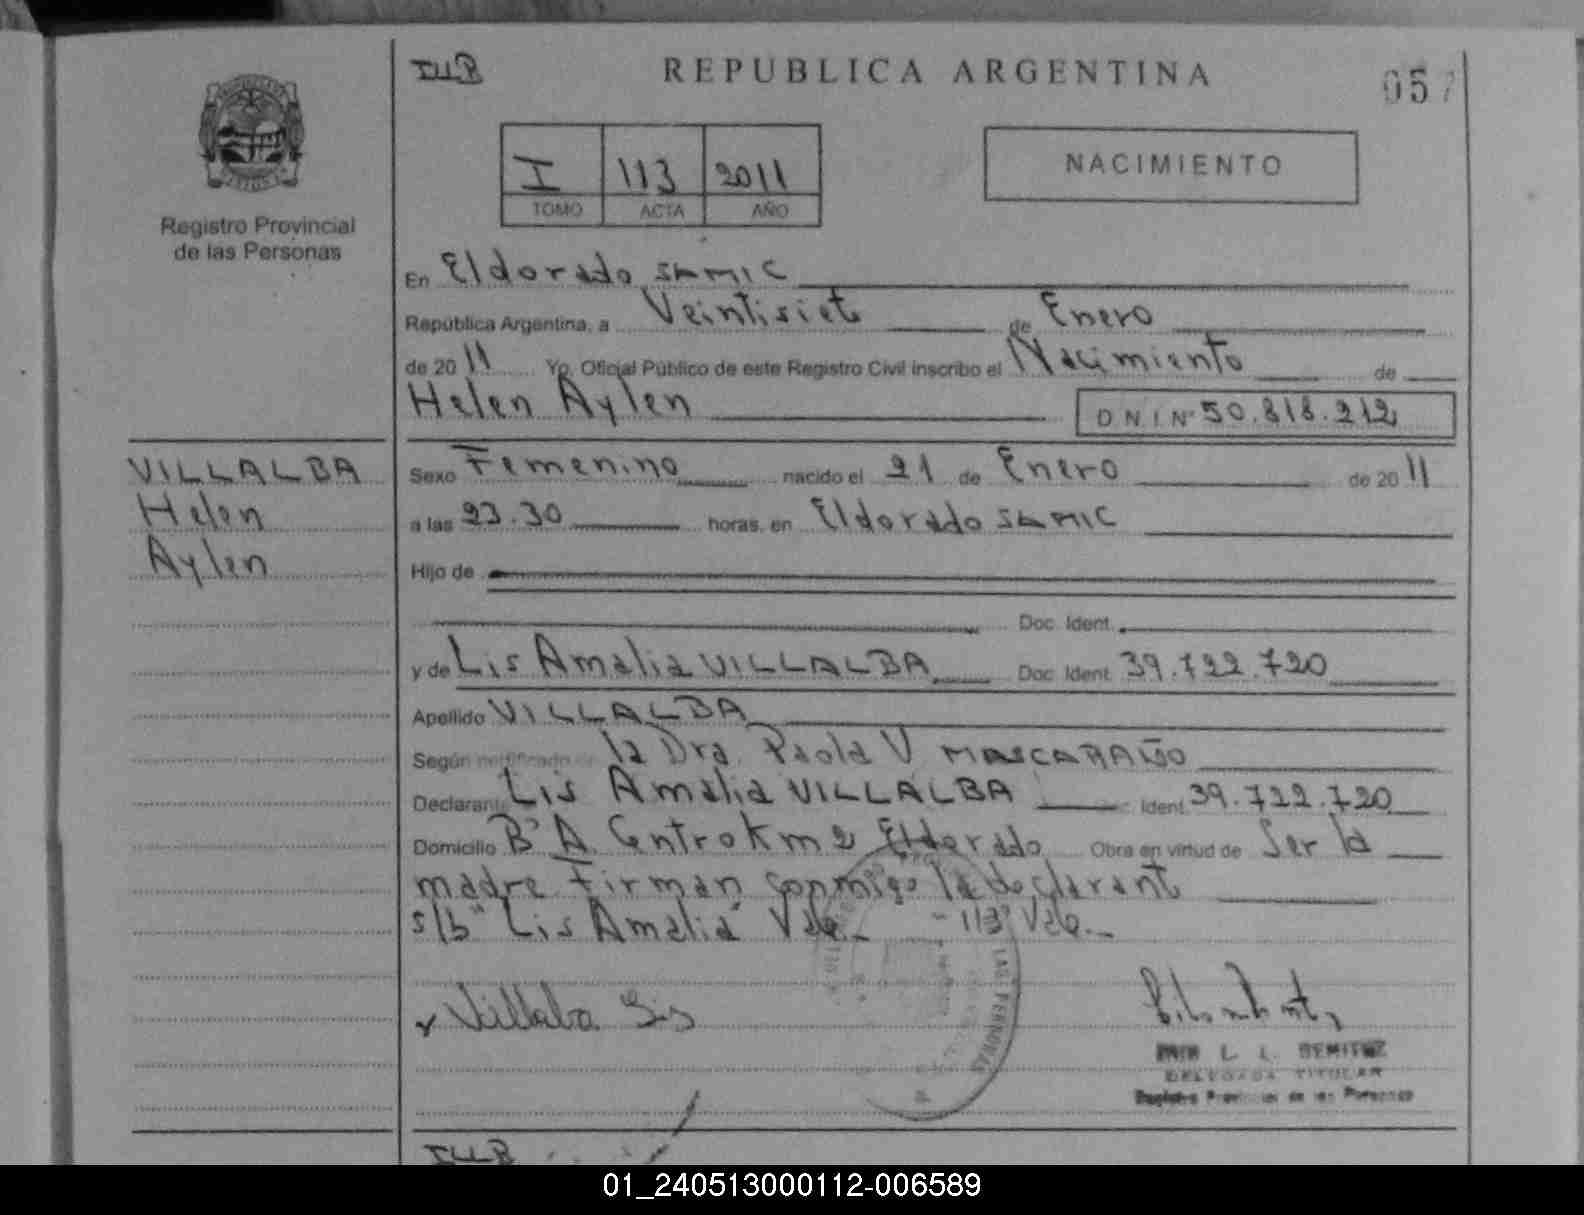 ILLB
REPUBLICA ARGENTINA
057
I 113 2011
TOMO ACTA AÑO
NACIMIENTO
Registro Provincial
de las Personas
En Eldorado SAMIC
República Argentina, a Veintisiete de Enero
de 2011 Yo, Oficial Público de este Registro Civil inscribo el Nacimiento de
Helen Aylen D.N.I. Nº 50.818.212
VILLALBA
Helen
Aylen
Sexo Femenino nacido el 21 de Enero de 2011
a las 23.30 horas, en Eldorado SAMIC
Hijo de
Doc. Ident.
y de Lis Amalia VILLALBA Doc. Ident. 39.722.720
Apellido VILLALBA
Según certificado de la Dra. Paola V MASCARAÑO
Declarante Lis Amalia VILLALBA Doc. Ident. 39.722.720
Domicilio Bº A. Centro Km 2 Eldorado Obra en virtud de Ser la
madre Firman conmigo la declarante
s/b "Lis Amalia" Vale.- - 113 Vale.-
Villalba Lis
L. BENITEZ
DELEGADA TITULAR
Registro Provincial de las Personas
LAS PERSONAS
ILLB
01_240513000112-006589